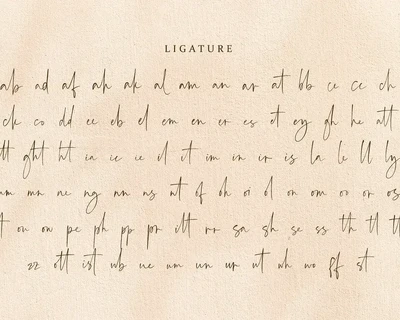 LIGATURE
ab ad af ah ak al am an ar at bb ce cc ch
ck co dd ee eb el em en er es et ey gh he att
ght ht ia ic ie il it im in ir is la le ll ly
mn ne ng nn ns nt of oh oi ol on om oo or os
on ow pe ph pp pr rr sa sh se ss th tl tt
zz ott ist ub ue um un ur ut wh wo ff st